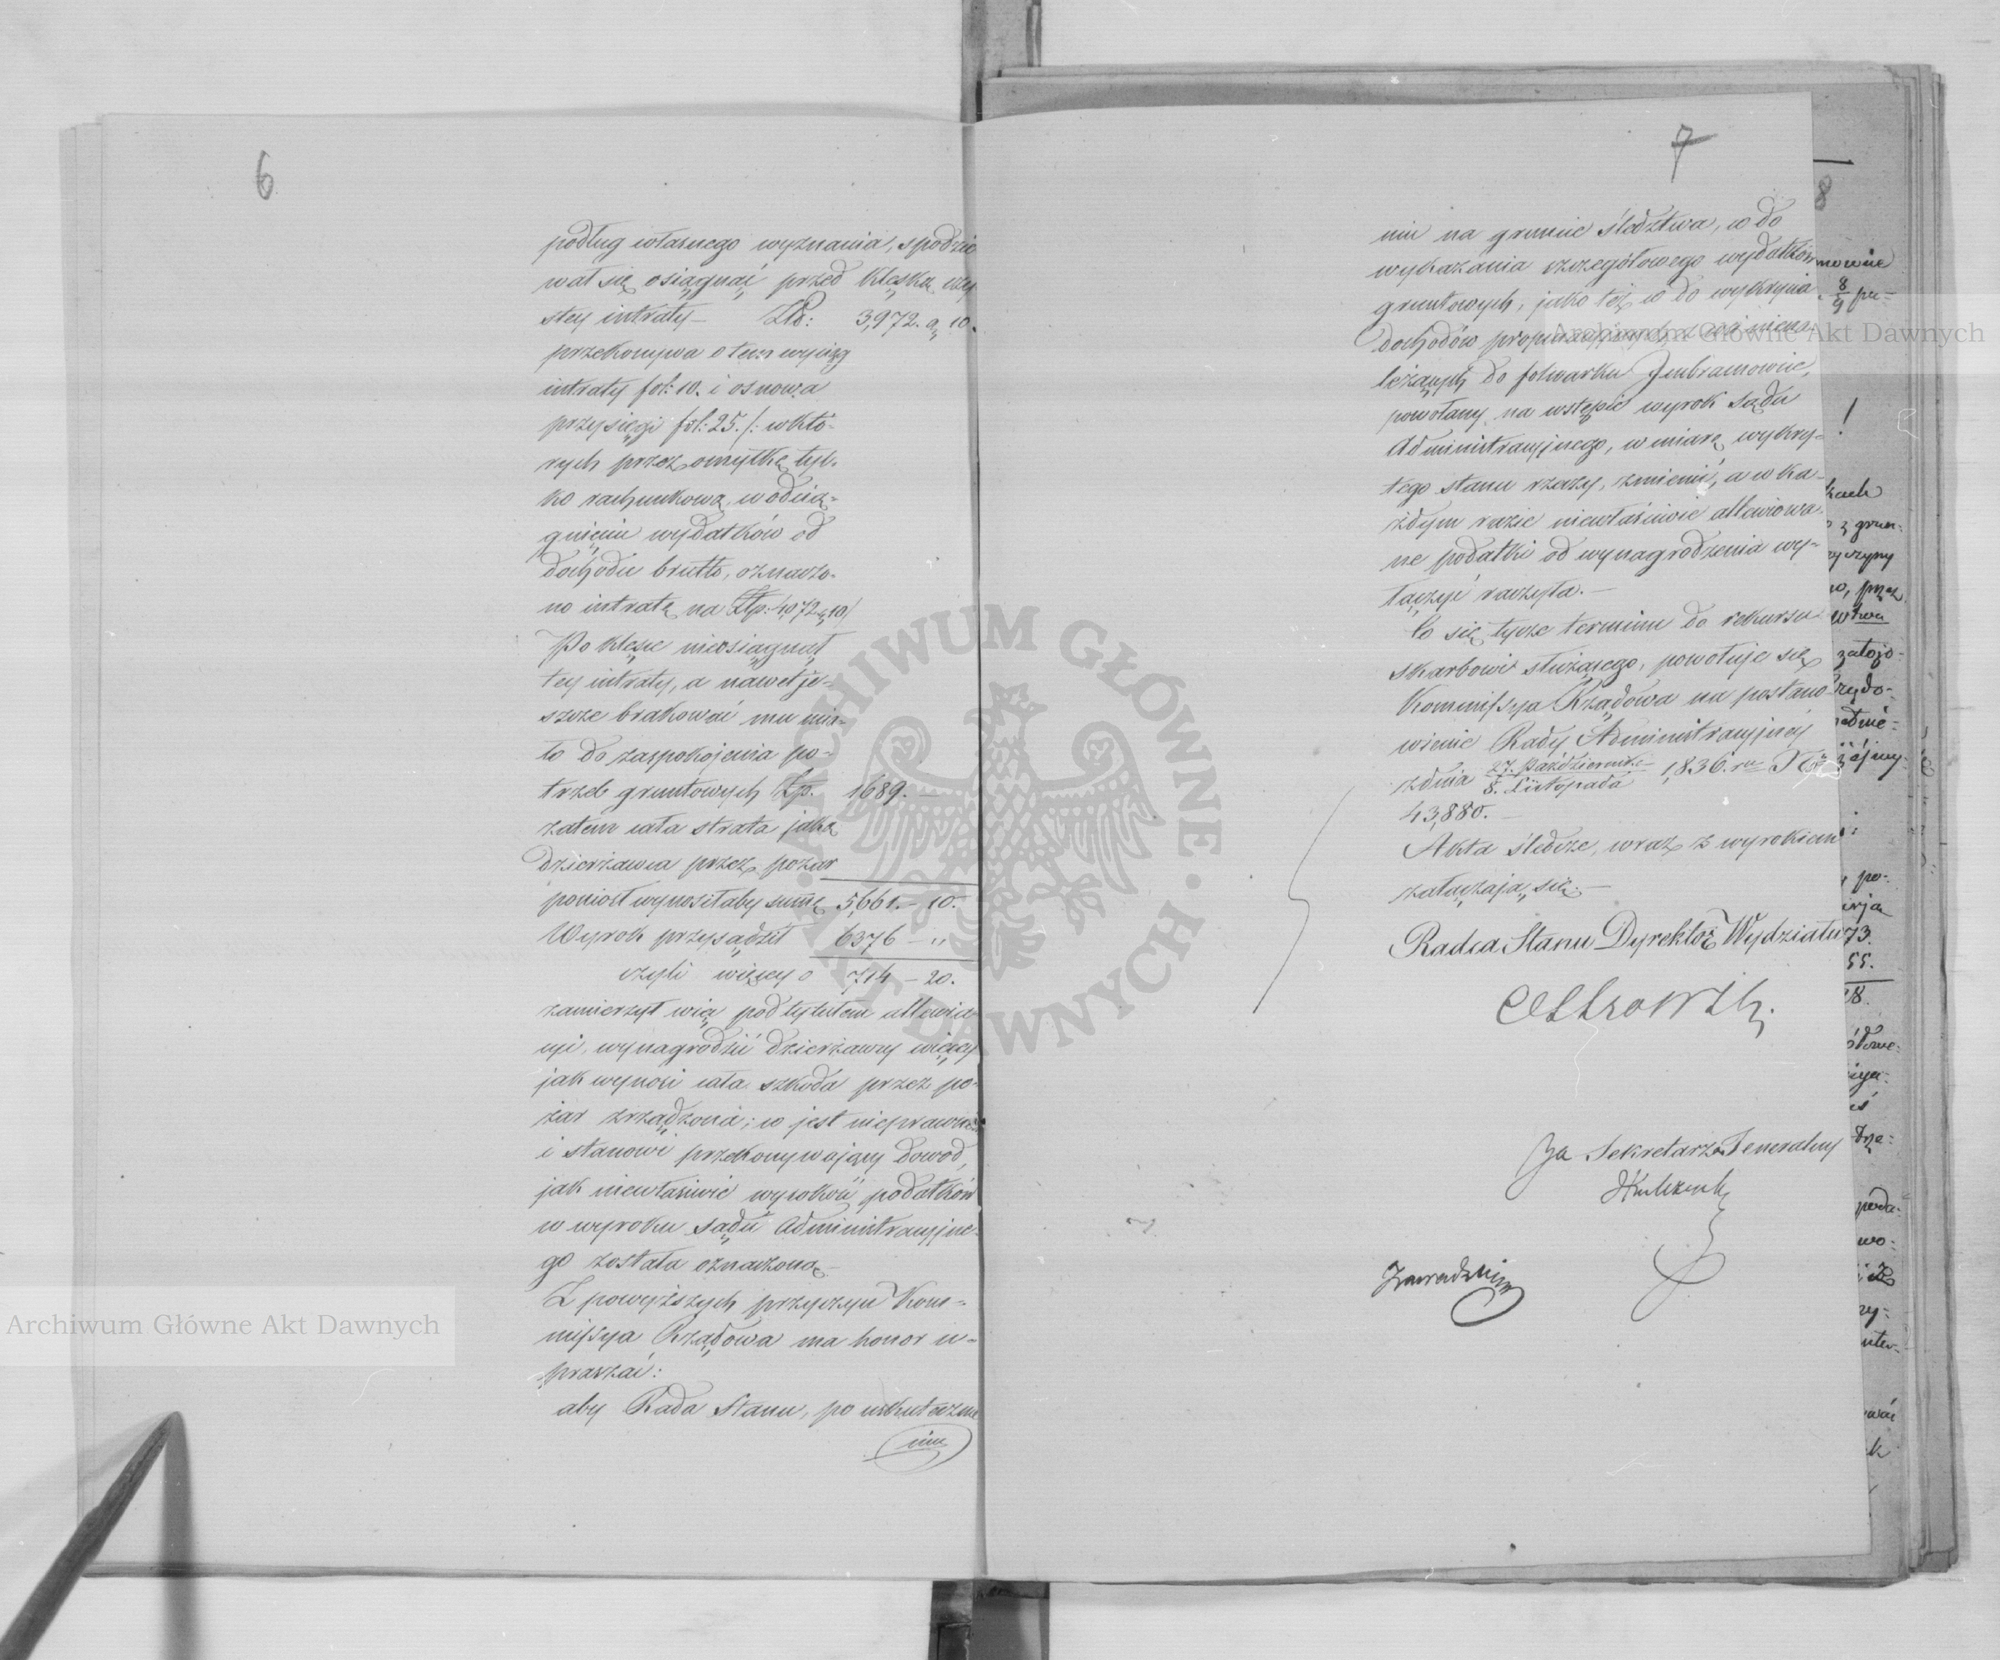 6
podług własnego wyznania, spodzie
wał się osiągnąć przed klęską czy
stej intraty — Złp: 3,972. g 10.
przekonywa o tem wyciąg
intraty fol: 10. i osnowa
przysięgi fol: 25. /: w któ-
rych przez omyłkę tyl-
ko rachunkową, w odcią-
gnieniu wydatków od
dochodu brutto, oznaczo-
no intratę na Złp: 4,072 g 10/
Po klęsce nieosiągnął
tej intraty, a nawet je-
szcze brakować mu mia-
ło do zaspokojenia po-
trzeb gruntowych Złp. 1689. —
zatem cała strata jaką
dzierżawca przez pożar
poniósł wynosiłaby summę 5,661. — 10.
Wyrok przysądził 6376 — „
czyli więcej o 714 — 20.
zamierzył więc pod tytułem allewia-
cyi, wynagrodzić dzierżawcy więcej
jak wynosi cała szkoda przez po-
żar zrządzona; co jest nieprawne
i stanowi przekonywający dowód,
jak niewłaściwie wysokość podatków
w wyroku sądu Administracyjne-
go została oznaczoną —
Z powyższych przyczyn Kom-
missya Rządowa ma honor u-
praszać:
aby Rada Stanu, po uskutecznie
niu
7
niu na gruncie śledztwa, co do
wykazania szczegółowego wydatków
gruntowych, jako też co do wykrycia
dochodów propinacyjnych
leżących do folwarku Imbramowice,
powołany na wstępie wyrok sądu
Administracyjnego, w miarę wykry-
tego stanu rzeczy, zmienić, a w ka-
żdym razie niewłaściwie allewiowa-
ne podatki od wynagrodzenia wy-
łączyć raczyła. —
Co się tycze terminu do rekursu
skarbowi służącego, powołuje się
Kommissya Rządowa na postano-
wienie Rady Administracyjnej
z dnia 27. Października / 8. Listopada 1,836. ru N
43,880. —
Akta śledcze, wraz z wyrokiem
załączają się. —
Radca Stanu Dyrektor Wydziału
Za Sekretarza Generalny
8
mowie
8/9 pu-
!
kach
z grun-
czyny
no, przez
zatojo-
po-
73.
55.
28.
poda-
wo-
Archiwum Główne Akt Dawnych
Archiwum Główne Akt Dawnych
ARCHIWUM GŁÓWNE AKT DAWNYCH